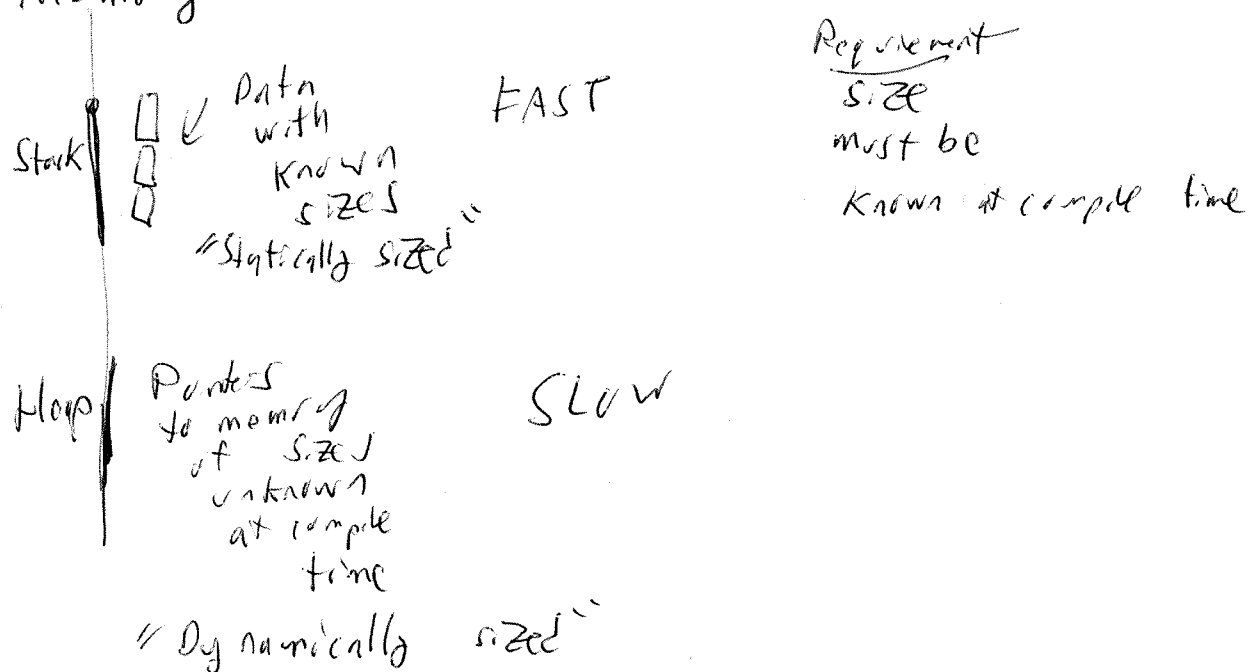 Memory
Stack
Data
with
known
sizes
"Statically sized"
FAST
Requirement
size
must be
known at compile time
Heap
Pointers
to memory
of sizes
unknown
at compile
time
"Dynamically sized"
SLOW